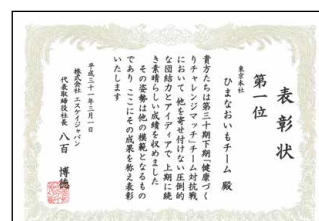 表彰状
第一位
東京本社
ひまなおいもチーム 殿
貴方たちは第三十期下期「健康づく
りチャレンジマッチ」チーム対抗戦
において 他を寄せ付けない圧倒的
な団結力とアイディアで 上期に続
き素晴らしい成績を収めました
その姿勢は他の模範となるもの
であり ここにその成果を称え表彰
いたします
平成三十一年三月一日
株式会社 エスケイジャパン
代表取締役社長 八百 博徳